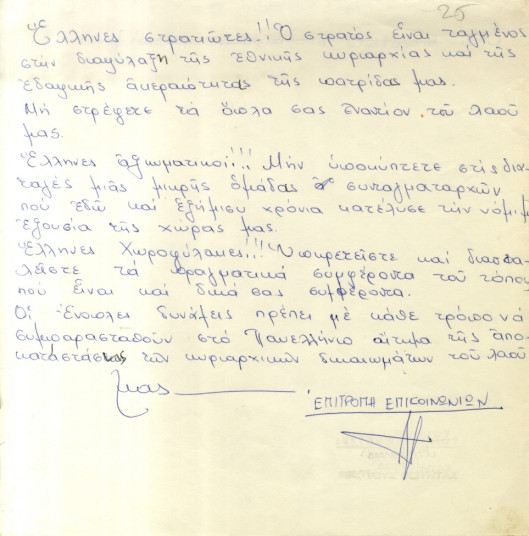 25
Ἕλληνες στρατιῶτες!! Ὁ στρατός εἶναι ταγμένος
στήν διαφύλαξη τῆς ἐθνικῆς κυριαρχίας καί τῆς
ἐδαφικῆς ἀκεραιότητας τῆς πατρίδας μας.
Μή στρέφετε τά ὅπλα σας ἐναντίον τοῦ λαοῦ
μας.
Ἕλληνες ἀξιωματικοί!!! Μήν ὑποκύπτετε στίς δια-
ταγές μιᾶς μικρῆς ὁμάδας συνταγματαρχῶν
πού ἐδῶ καί ἑξήμισυ χρόνια κατέλυσε τήν νόμιμη
ἐξουσία τῆς χώρας μας.
Ἕλληνες Χωροφύλακες!!! Ὑπηρετεῖστε καί διασφα-
λεῖστε τά πραγματικά συμφέροντα τοῦ τόπου
πού εἶναι καί δικά σας συμφέροντα.
Οἱ Ἔνοπλες δυνάμεις πρέπει μέ κάθε τρόπο νά
συμπαρασταθοῦν στό Πανελλήνιο αἴτημα τῆς ἀπο-
κατάστασεως τῶν κυριαρχικῶν δικαιωμάτων τοῦ λαοῦ
μας
ΕΠΙΤΡΟΠΗ ΕΠΙΚΟΙΝΩΝΙΩΝ